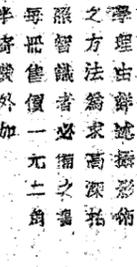 學理由詳述攝影術
之方法爲求高深拍
照智識者必備之書
每冊售價一元二角
外加